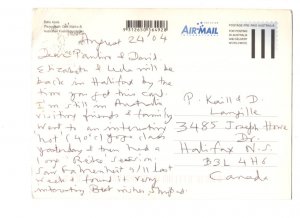 August 24 04
Dear Pamm & David.
Elizabeth & Leda will be
back in Halifax by the
time you get this card.
I'm still in Australia
visiting friends & family
Went to an interesting
hot (40°C) yoga class
yesterday & then had a
long "Retro" session.
Saw Farhenheit 9/11 last
week & found it very
interesting
AIR MAIL
POSTAGE PAID AUSTRALIA
P. Kaill & D.
Langille
3485 Joseph Howe
Dr.
Halifax N.S.
B3L 4H6
Canada